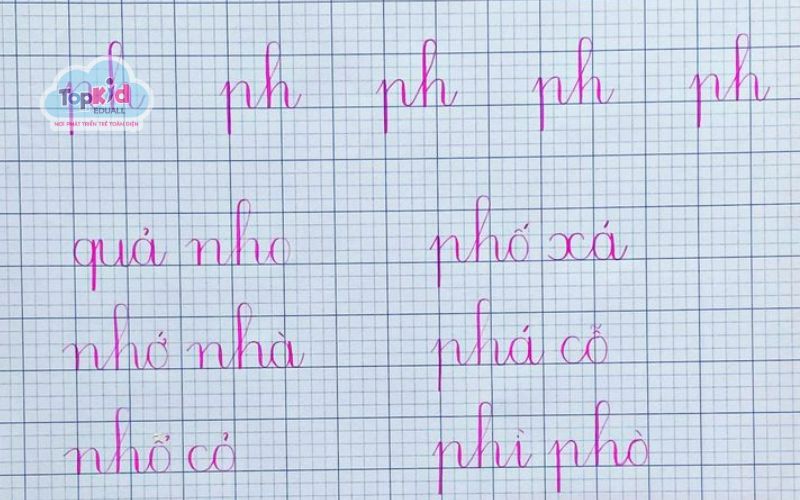 ph ph ph ph ph
TopKid
EDUALL
NƠI PHÁT TRIỂN TRẺ TOÀN DIỆN
quả nho phố xá
nhớ nhà phá cỗ
nhổ cỏ phì phò